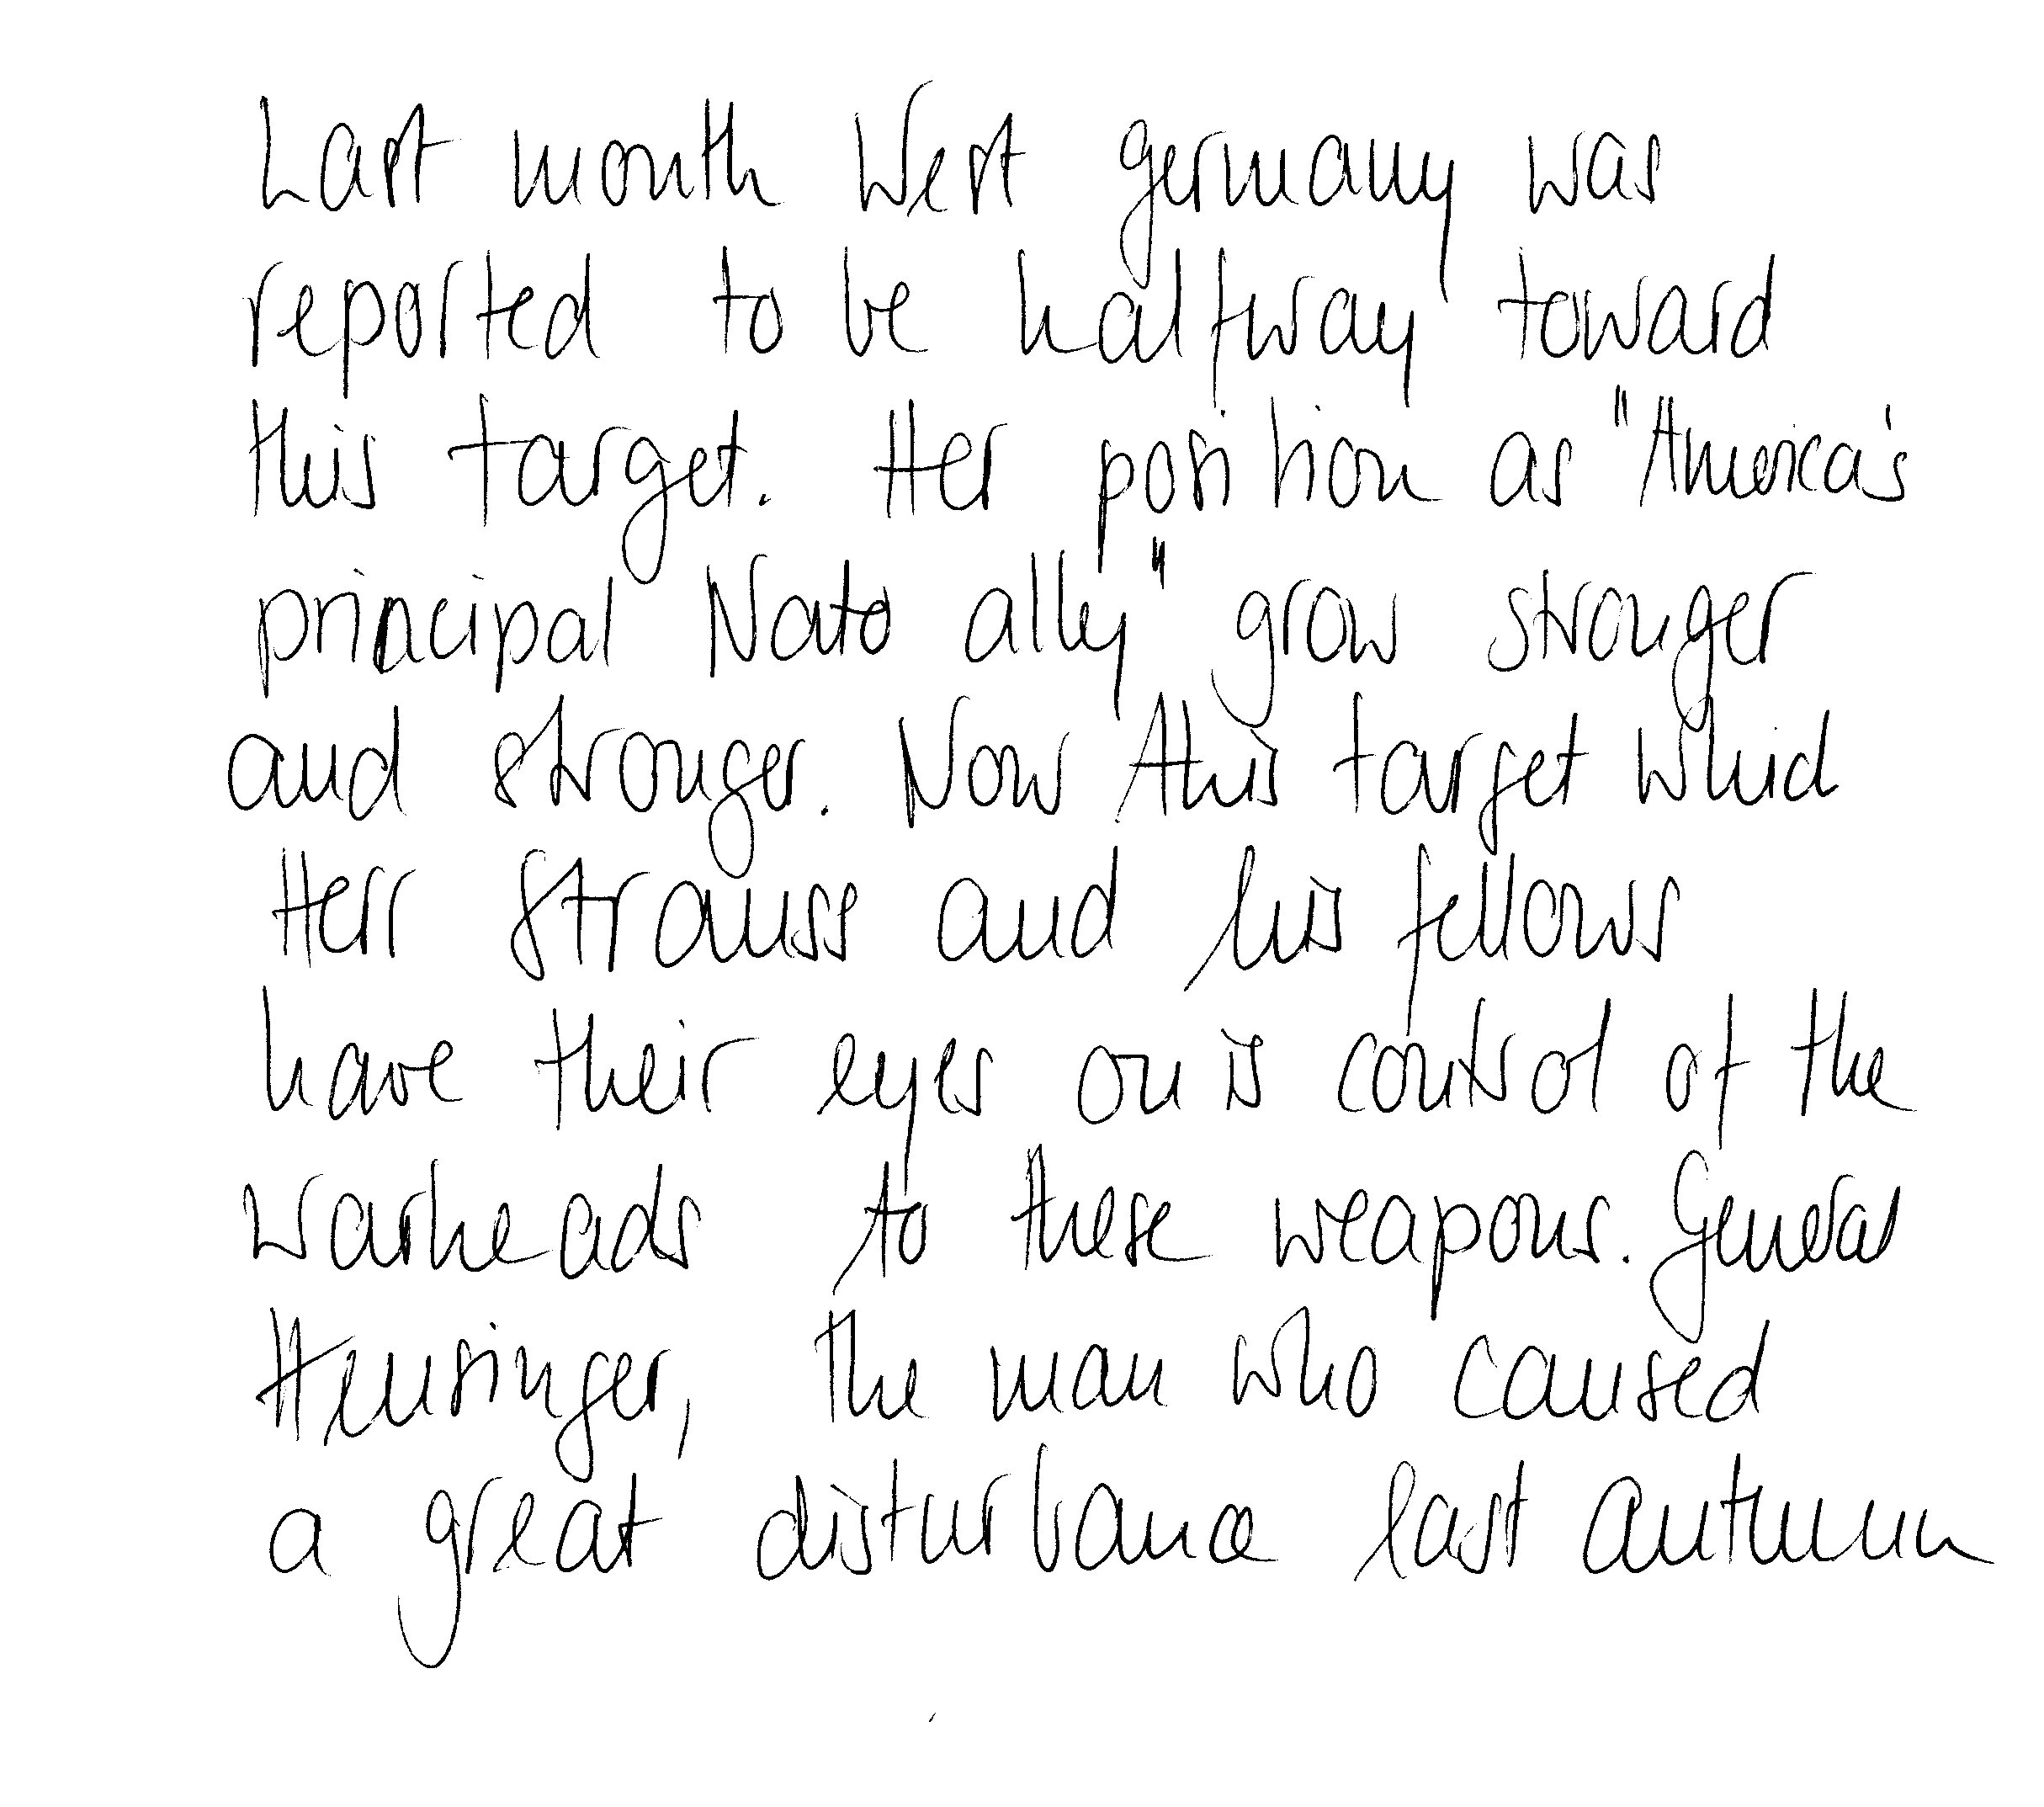 Last month West Germany was
reported to be halfway toward
this target. Her position as "America's
principal Nato ally" grow stronger
and stronger. Now this target which
Herr Strauss and his fellows
have their eyes on is control of the
warheads to these weapons. General
Heusinger, the man who caused
a great disturbance last autumn